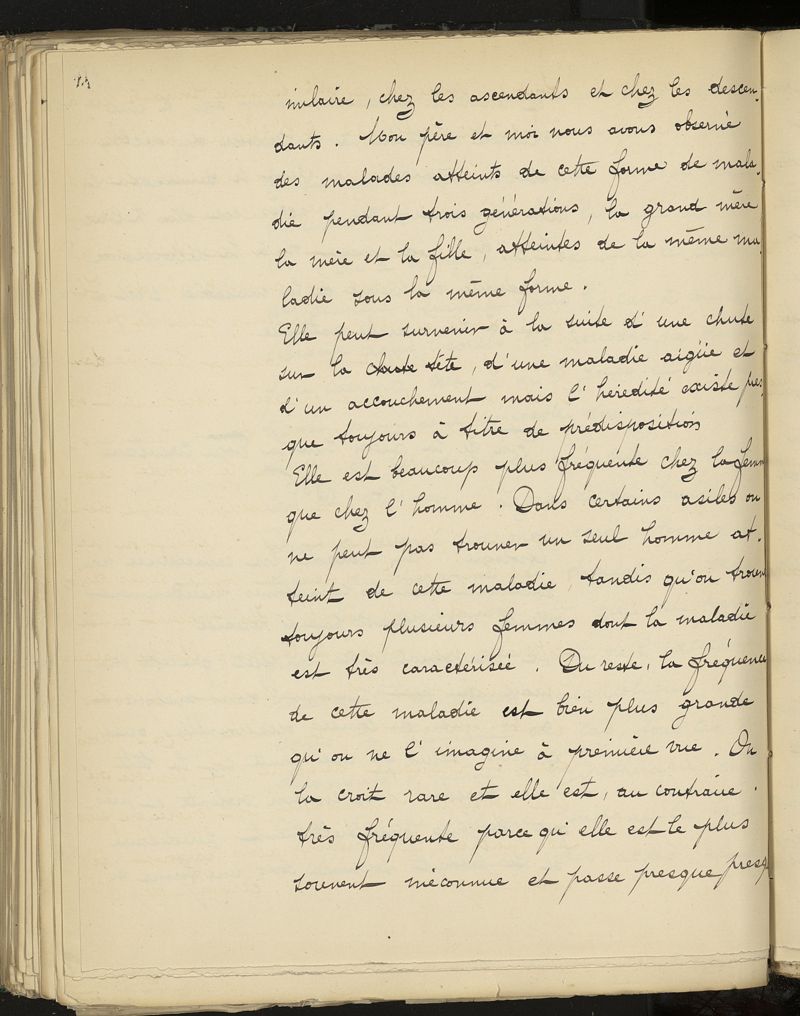 milaire, chez les ascendants et chez les descen-
dants. Mon père et moi nous avons observé
des malades atteints de cette forme de mala-
die pendant trois générations, la grand mère
la mère et la fille, atteintes de la même ma-
ladie sous la même forme.
Elle peut survenir à la suite d'une chute
sur la chute tête, d'une maladie aigüe et
d'un accouchement mais l'hérédité existe pres-
que toujours à titre de prédisposition
Elle est beaucoup plus fréquente chez la femm
que chez l'homme. Dans certains asiles on
ne peut pas trouver un seul homme at-
teint de cette maladie, tandis qu'on trouve
toujours plusieurs femmes dont la maladie
est très caractérisée. Du reste, la fréquence
de cette maladie est bien plus grande
qu'on ne l'imagine à première vue. On
la croit rare et elle est, au contraire.
très fréquente parce qu'elle est le plus
souvent méconnue et passe presque presq